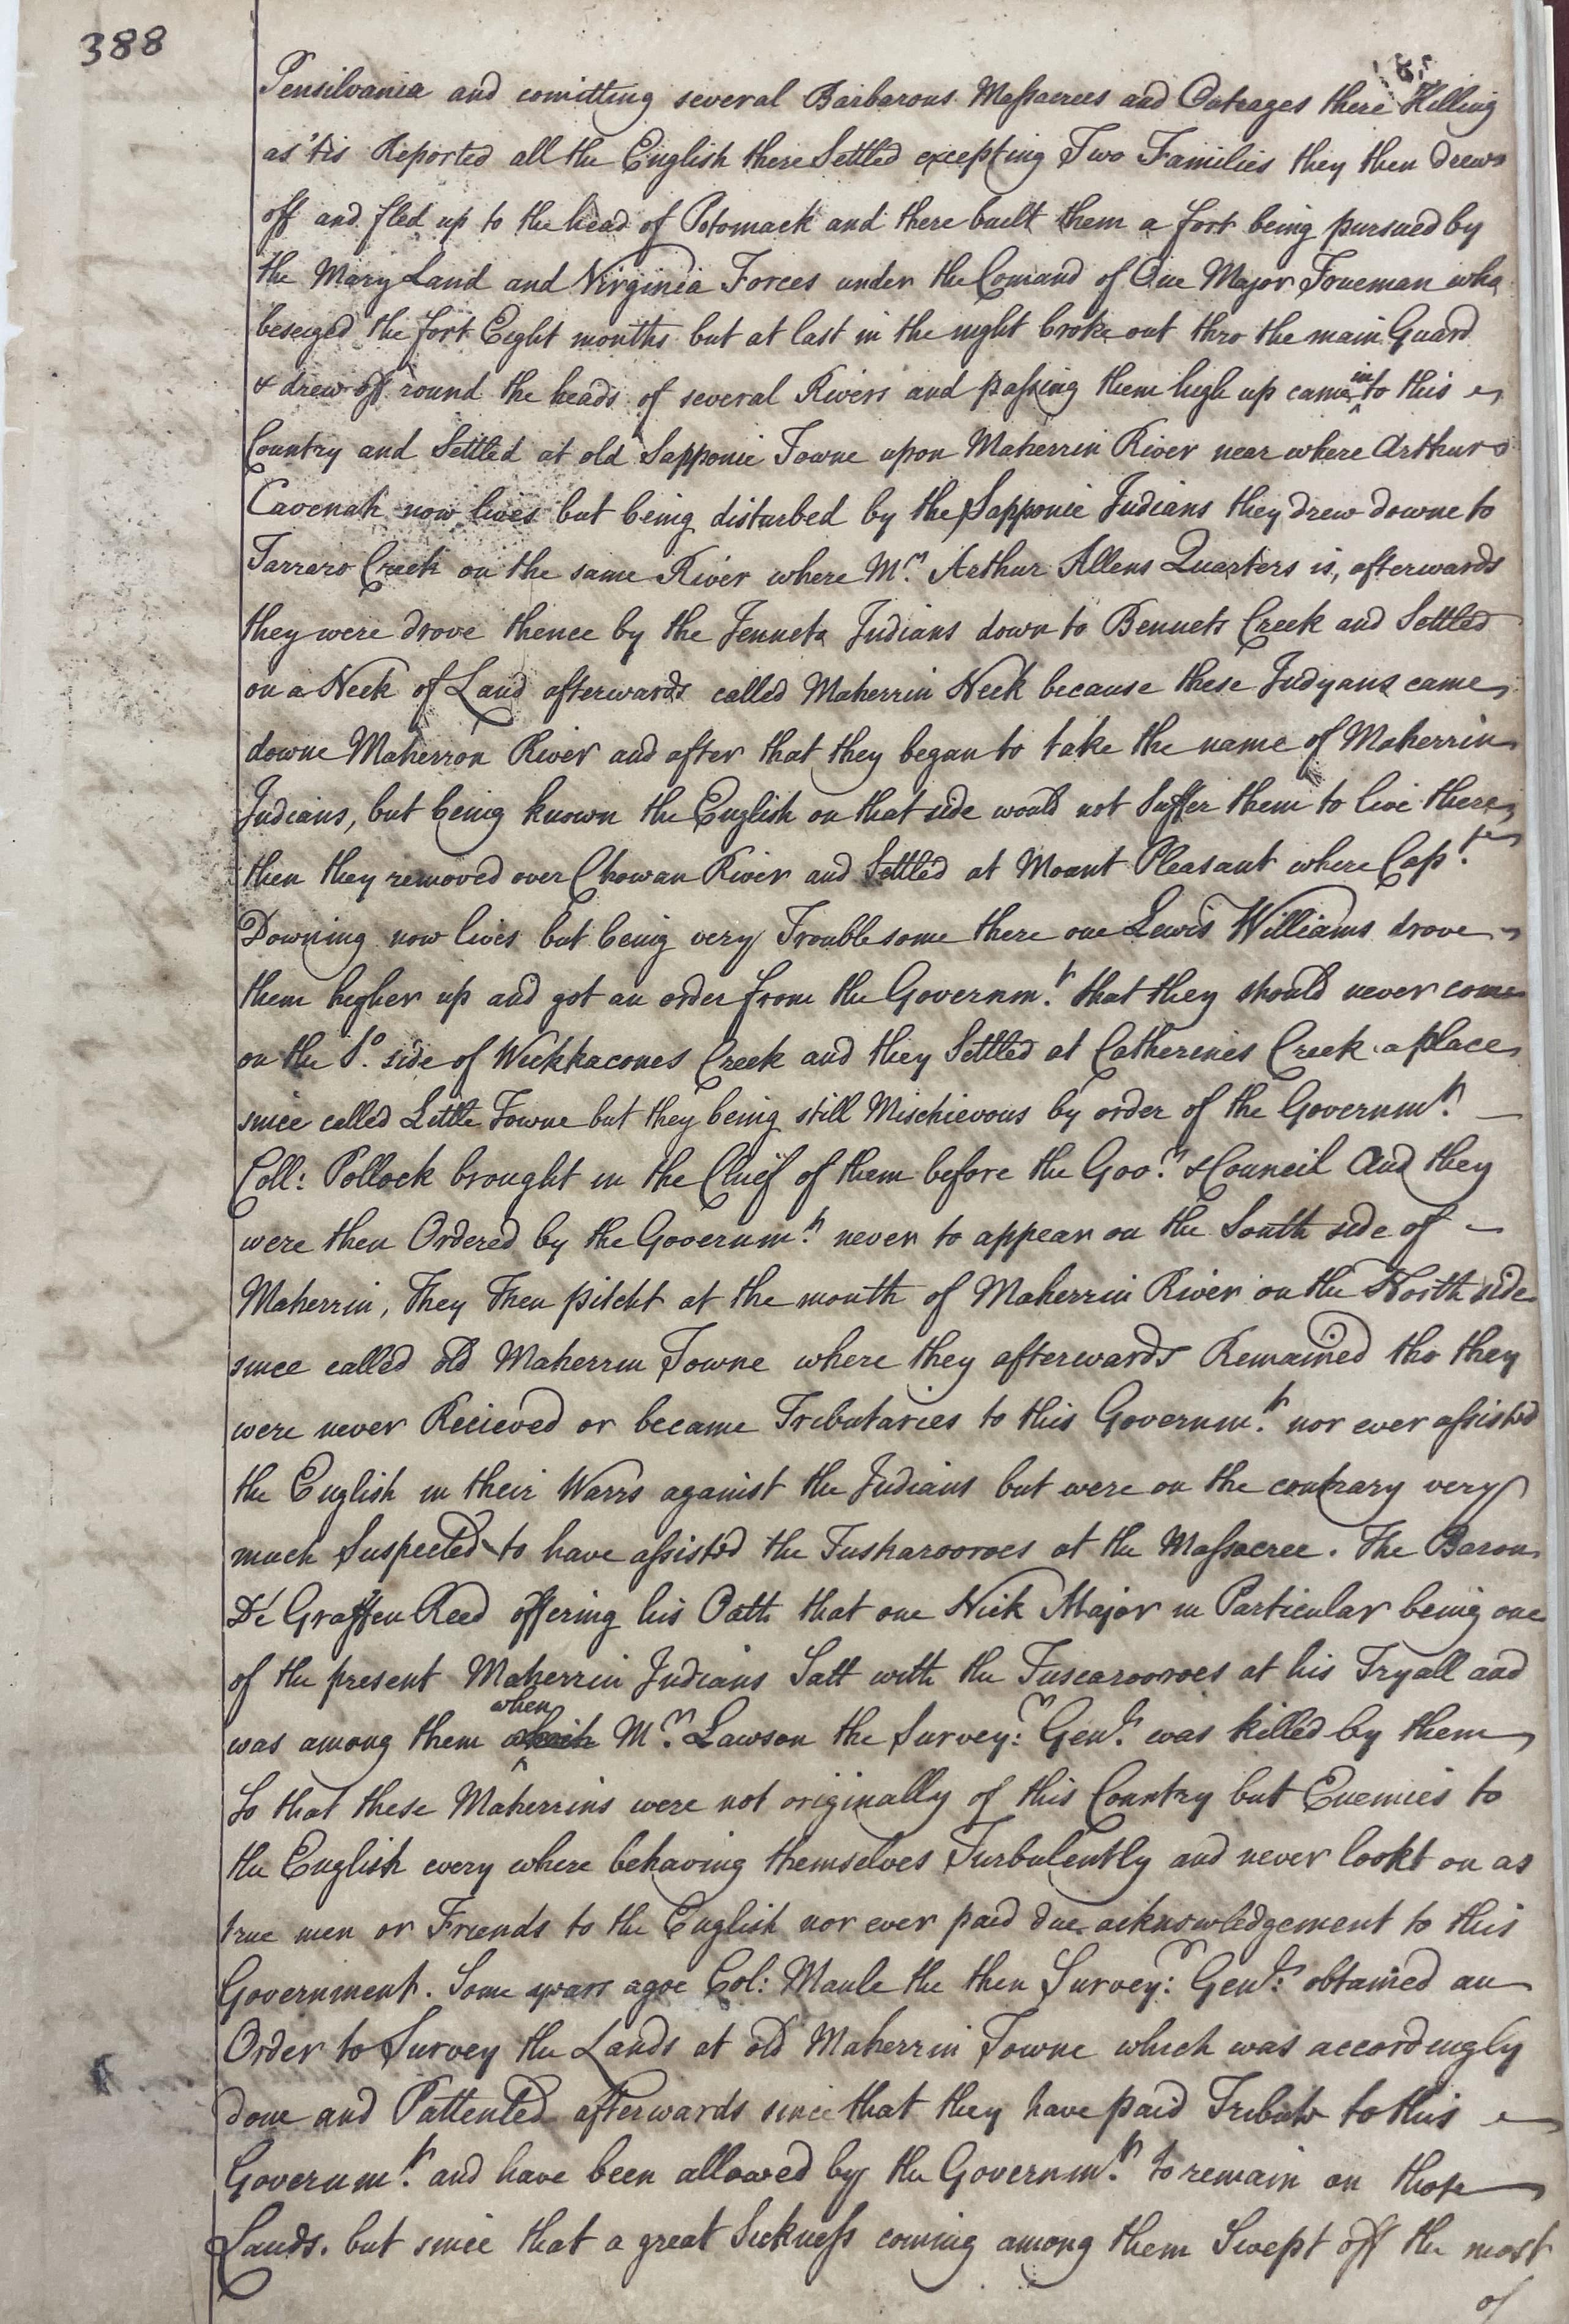 388
Pensilvania and comitting several Barbarous Massacrees and Outrages there Killing
as 'tis Reported all the English there Settled excepting Two Families they then drew
off and fled up to the head of Potomack and there built them a fort being pursued by
the Mary Land and Virginia Forces under the Comand of One Major Trueman who
beseiged the fort Eight months but at last in the night broke out thro the main Guard
& drew off round the heads of several Rivers and passing them high up came into this
Country and Settled at old Sapponie Towne upon Maherrin River near where Arthur
Cavenah now lives but being disturbed by the Sapponie Indians they drew downe to
Tarraro Creek on the same River where Mr. Arthur Allens Quarters is, afterwards
they were drove thence by the Jenneta Indians down to Bennets Creek and Settled
on a Neck of Land afterwards called Maherrin Neck because these Indyans came
downe Maherron River and after that they began to take the name of Maherrin
Indians, but being known the English on that side would not Suffer them to live there
then they removed over Chowan River and Settled at Mount Pleasant where Capt.
Downing now lives but being very Troublesome there one Lewis Williams drove
them higher up and got an order from the Governmt. that they should never come
on the So. side of Wickkacones Creek and they Settled at Catherines Creek a place
since called Little Towne but they being still Mischievous by order of the Governmt.
Coll: Pollock brought in the Chief of them before the Govr. & Council And they
were then Ordered by the Governmt. never to appear on the South side of
Maherrin, They Then pitcht at the mouth of Maherrin River on the North side
since called old Maherrin Towne where they afterwards Remained tho they
were never Recieved or became Tributaries to this Governmt. nor ever assisted
the English in their Warrs against the Indians but were on the contrary very
much Suspected to have assisted the Tuskarooroes at the Massacree. The Baron
De Graffen Reed offering his Oath that one Nick Major in Particular being one
of the present Maherrin Indians Satt with the Tuscarooroes at his Tryall and
was among them when Mr. Lawson the Surveyr: Genl. was killed by them
So that these Maherrins were not originally of this Country but Enemies to
the English every where behaving themselves Turbulently and never lookt on as
true men or Friends to the English nor ever paid due acknowledgement to this
Government. Some years agoe Col: Maule the then Surveyr: Genl: obtained an
Order to Survey the Lands at old Maherrin Towne which was accordingly
done and Pattented afterwards since that they have paid Tribute to this
Governmt. and have been allowed by the Governmt. to remain on those
Lands. but since that a great Sickness coming among them Swept off the most
of